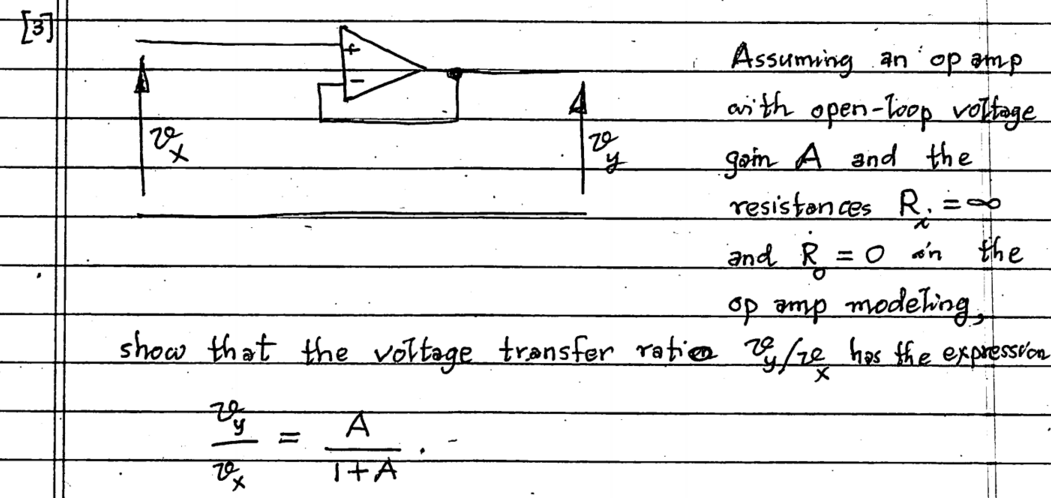 [3]
+
−
v_x
v_y
Assuming an op amp
with open-loop voltage
gain A and the
resistances R_i = ∞
and R_o = 0 in the
op amp modeling,
show that the voltage transfer ratio v_y/v_x has the expression
v_y/v_x = A/(1+A).